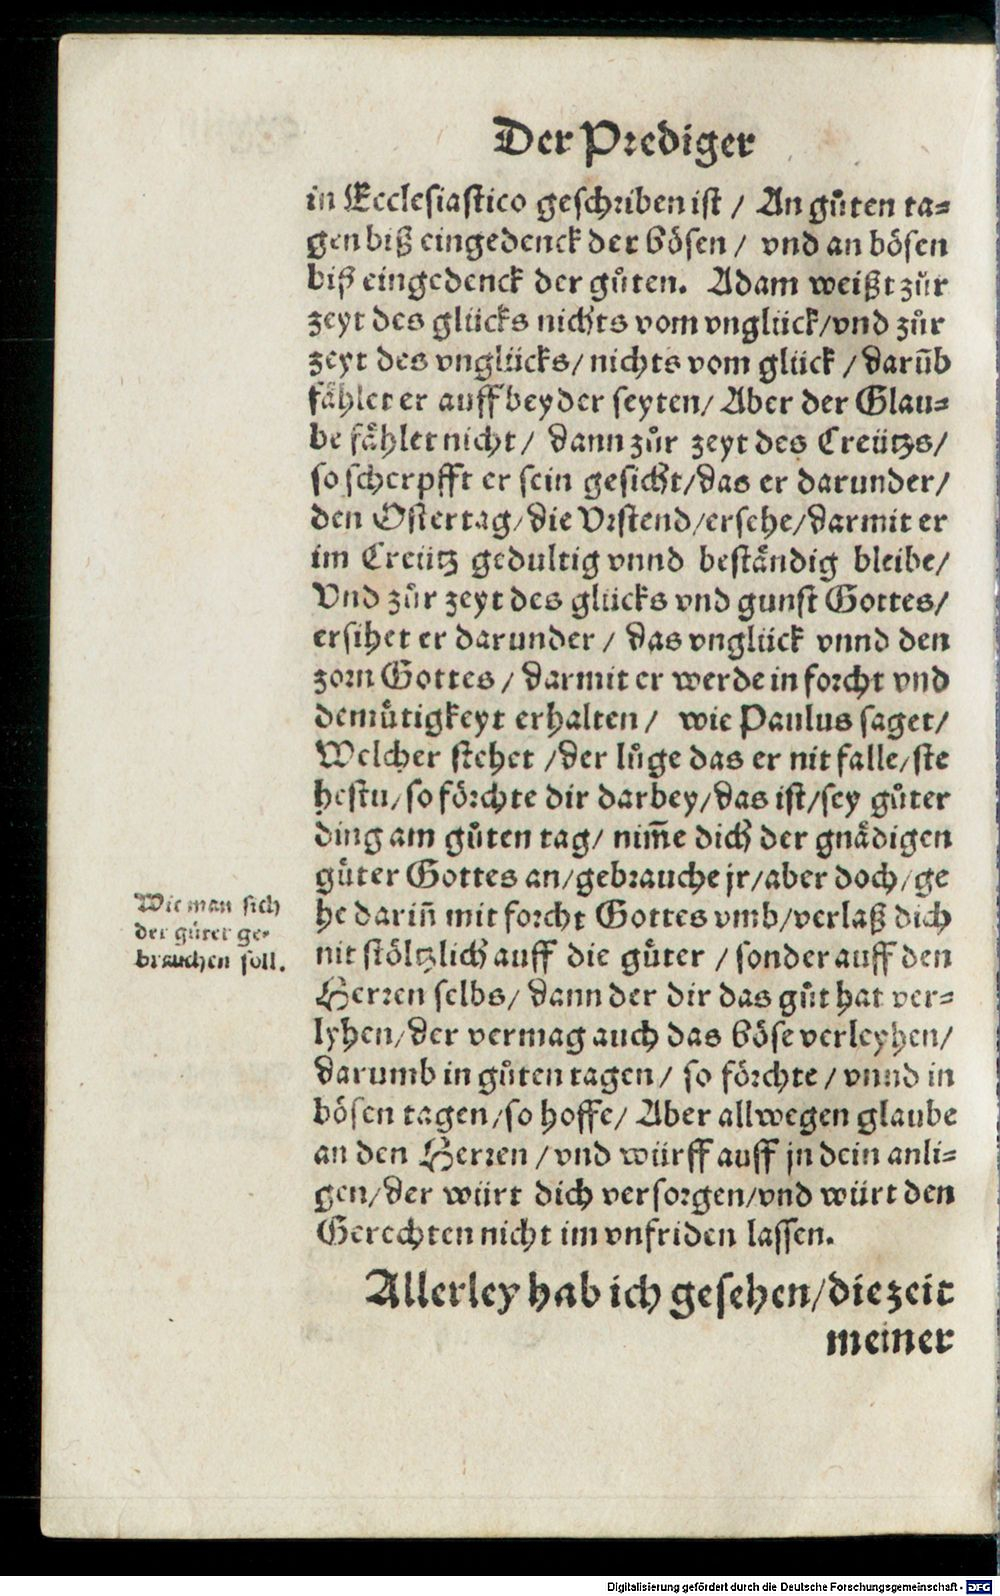 Der Prediger
in Ecclesiastico geschriben ist / An gůten ta⸗
gen biß eingedenck der bösen / vnd an bösen
biß eingedenck der gůten. Adam weißt zůr
zeyt des glücks nichts vom vnglück/vnd zůr
zeyt des vnglücks/ nichts vom glück / darūb
fählet er auff beyder seyten/ Aber der Glau⸗
be fählet nicht / dann zůr zeyt des Creützs/
so scherpfft er sein gesicht/das er darunder/
den Ostertag/die Vrstend/ersehe/darmit er
im Creütz gedultig vnnd beständig bleibe/
Vnd zůr zeyt des glücks vnd gunst Gottes/
ersihet er darunder / das vnglück vnnd den
zorn Gottes / darmit er werde in forcht vnd
demůtigkeyt erhalten / wie Paulus saget/
Welcher stehet /der lůge das er nit falle/ste
hestu/so förchte dir darbey/das ist/sey gůter
ding am gůten tag/ nim̄e dich der gnädigen
gůter Gottes an/gebrauche jr/aber doch/ge
he dariñ mit forcht Gottes vmb/verlaß dich
nit stöltzlich auff die gůter / sonder auff den
Herren selbs/ dann der dir das gůt hat ver⸗
lyhen/der vermag auch das böse verleyhen/
darumb in gůten tagen / so förchte / vnnd in
bösen tagen/so hoffe/ Aber allwegen glaube
an den Herren /vnd würff auff jn dein anli⸗
gen/der würt dich versorgen/vnd würt den
Gerechten nicht im vnfriden lassen.
Wie man sich
der gůter ge⸗
brauchen soll.
Allerley hab ich gesehen/die zeit
meiner
Digitalisierung gefördert durch die Deutsche Forschungsgemeinschaft - DFG